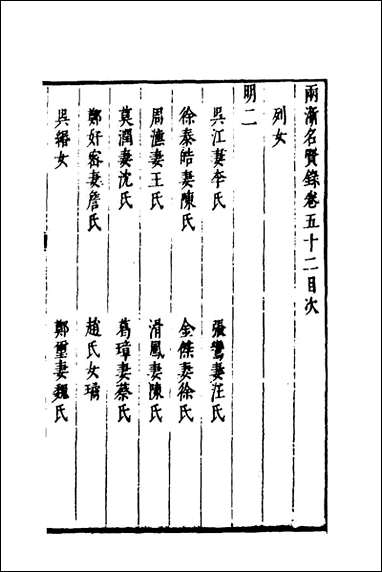 兩浙名賢錄卷五十二目次
列女
明二
吳江妻李氏　張鸞妻汪氏
徐泰皓妻陳氏　金傑妻徐氏
周漁妻王氏　滑鳳妻陳氏
莫潤妻沈氏　葛璋妻蔡氏
鄭奸容妻詹氏　趙氏女璚
吳縉女　鄭重妻魏氏